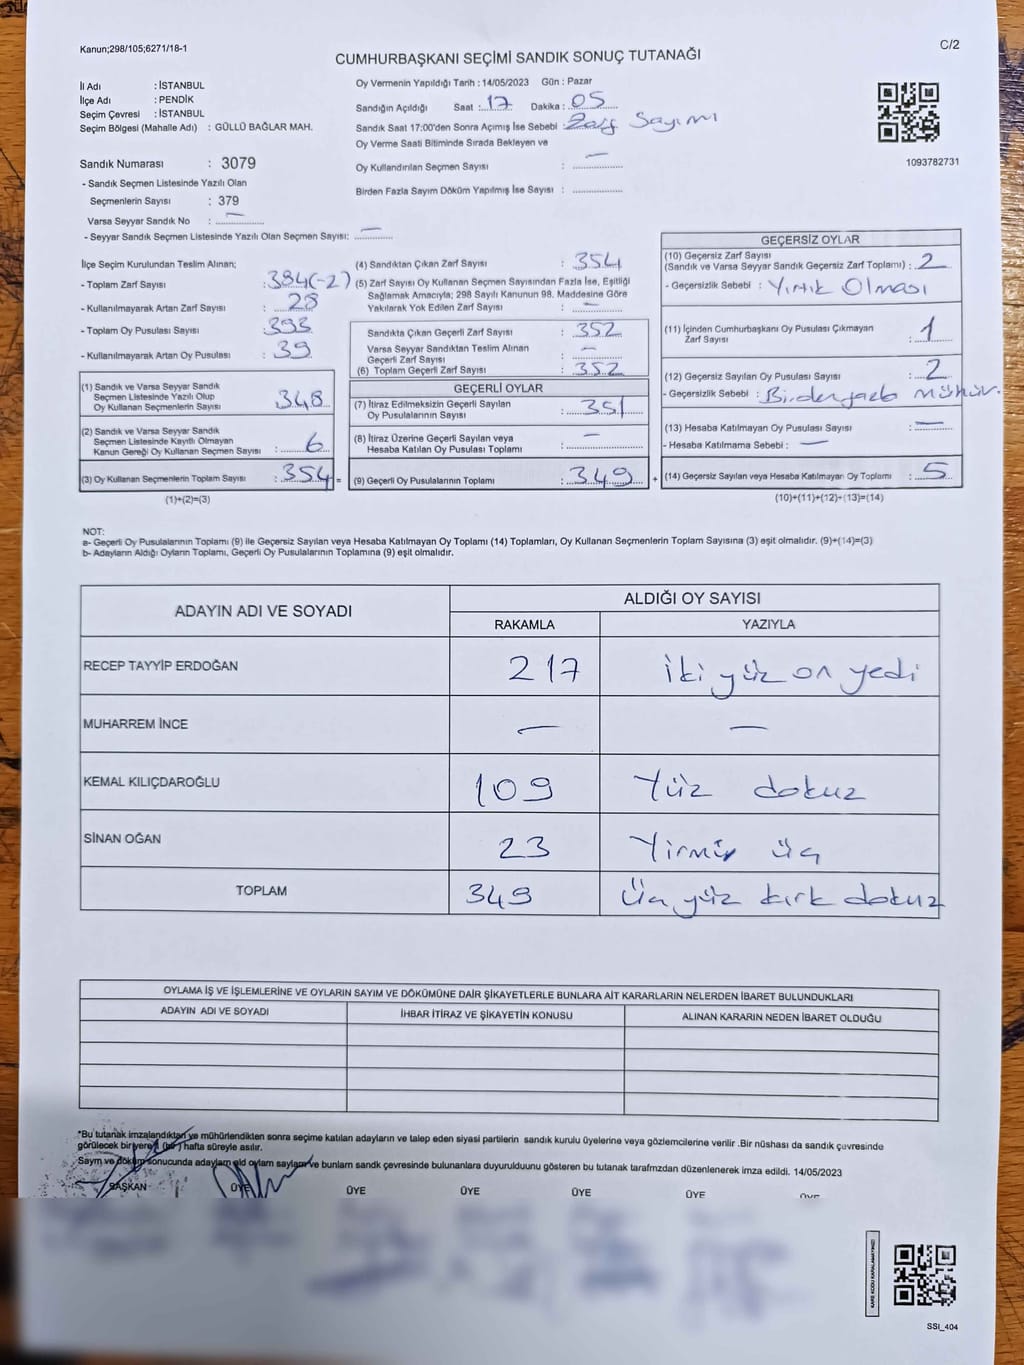 Kanun;298/105;6271/18-1
C/2
CUMHURBAŞKANI SEÇİMİ SANDIK SONUÇ TUTANAĞI
İl Adı : İSTANBUL
İlçe Adı : PENDİK
Seçim Çevresi : İSTANBUL
Seçim Bölgesi (Mahalle Adı) : GÜLLÜ BAĞLAR MAH.
Sandık Numarası : 3079
- Sandık Seçmen Listesinde Yazılı Olan
Seçmenlerin Sayısı : 379
Varsa Seyyar Sandık No : —
- Seyyar Sandık Seçmen Listesinde Yazılı Olan Seçmen Sayısı: —
Oy Vermenin Yapıldığı Tarih : 14/05/2023 Gün : Pazar
Sandığın Açıldığı Saat : 17 Dakika : 05
Sandık Saat 17:00'den Sonra Açmış İse Sebebi : Zarf Sayımı
Oy Verme Saati Bitiminde Sırada Bekleyen ve
Oy Kullandırılan Seçmen Sayısı : —
Birden Fazla Sayım Döküm Yapılmış İse Sayısı :
1093782731
İlçe Seçim Kurulundan Teslim Alınan;
- Toplam Zarf Sayısı : 384(-2)
- Kullanılmayarak Artan Zarf Sayısı : 28
- Toplam Oy Pusulası Sayısı : 393
- Kullanılmayarak Artan Oy Pusulası : 39
(1) Sandık ve Varsa Seyyar Sandık
Seçmen Listesinde Yazılı Olup
Oy Kullanan Seçmenlerin Sayısı : 348
(2) Sandık ve Varsa Seyyar Sandık
Seçmen Listesinde Kayıtlı Olmayan
Kanun Gereği Oy Kullanan Seçmen Sayısı : 6
(3) Oy Kullanan Seçmenlerin Toplam Sayısı : 354 =
(1)+(2)=(3)
(4) Sandıktan Çıkan Zarf Sayısı : 354
(5) Zarf Sayısı Oy Kullanan Seçmen Sayısından Fazla İse, Eşitliği
Sağlamak Amacıyla; 298 Sayılı Kanunun 98. Maddesine Göre
Yakılarak Yok Edilen Zarf Sayısı : —
Sandıkta Çıkan Geçerli Zarf Sayısı : 352
Varsa Seyyar Sandıktan Teslim Alınan
Geçerli Zarf Sayısı : —
(6) Toplam Geçerli Zarf Sayısı : 352
GEÇERLİ OYLAR
(7) İtiraz Edilmeksizin Geçerli Sayılan
Oy Pusulalarının Sayısı : 351
(8) İtiraz Üzerine Geçerli Sayılan veya
Hesaba Katılan Oy Pusulası Toplamı : —
(9) Geçerli Oy Pusulalarının Toplamı : 349 +
GEÇERSİZ OYLAR
(10) Geçersiz Zarf Sayısı
(Sandık ve Varsa Seyyar Sandık Geçersiz Zarf Toplamı) : 2
- Geçersizlik Sebebi : Yırtık Olması
(11) İçinden Cumhurbaşkanı Oy Pusulası Çıkmayan
Zarf Sayısı : 1
(12) Geçersiz Sayılan Oy Pusulası Sayısı : 2
- Geçersizlik Sebebi : Birden fazla mühür.
(13) Hesaba Katılmayan Oy Pusulası Sayısı : —
- Hesaba Katılmama Sebebi : —
(14) Geçersiz Sayılan veya Hesaba Katılmayan Oy Toplamı : 5
(10)+(11)+(12)+(13)=(14)
NOT:
a- Geçerli Oy Pusulalarının Toplamı (9) ile Geçersiz Sayılan veya Hesaba Katılmayan Oy Toplamı (14) Toplamları, Oy Kullanan Seçmenlerin Toplam Sayısına (3) eşit olmalıdır. (9)+(14)=(3)
b- Adayların Aldığı Oyların Toplamı, Geçerli Oy Pusulalarının Toplamına (9) eşit olmalıdır.
ADAYIN ADI VE SOYADI
ALDIĞI OY SAYISI
RAKAMLA YAZIYLA
RECEP TAYYİP ERDOĞAN 217 İki yüz on yedi
MUHARREM İNCE — —
KEMAL KILIÇDAROĞLU 109 Yüz dokuz
SİNAN OĞAN 23 Yirmi üç
TOPLAM 349 Üç yüz kırk dokuz
OYLAMA İŞ VE İŞLEMLERİNE VE OYLARIN SAYIM VE DÖKÜMÜNE DAİR ŞİKAYETLERLE BUNLARA AİT KARARLARIN NELERDEN İBARET BULUNDUKLARI
ADAYIN ADI VE SOYADI İHBAR İTİRAZ VE ŞİKAYETİN KONUSU ALINAN KARARIN NEDEN İBARET OLDUĞU
*Bu tutanak imzalandıktan ve mühürlendikten sonra seçime katılan adayların ve talep eden siyasi partilerin sandık kurulu üyelerine veya gözlemcilerine verilir .Bir nüshası da sandık çevresinde
görülecek bir yere 1 (bir) hafta süreyle asılır.
Sayım ve döküm sonucunda adayların ve bunların sandık çevresinde bulunanlara duyurulduunu gösteren bu tutanak tarafımzdan düzenlenerek imza edildi. 14/05/2023
BAŞKAN ÜYE ÜYE ÜYE ÜYE ÜYE
KARE KODU KARALAMAYINIZ!
SSI_404